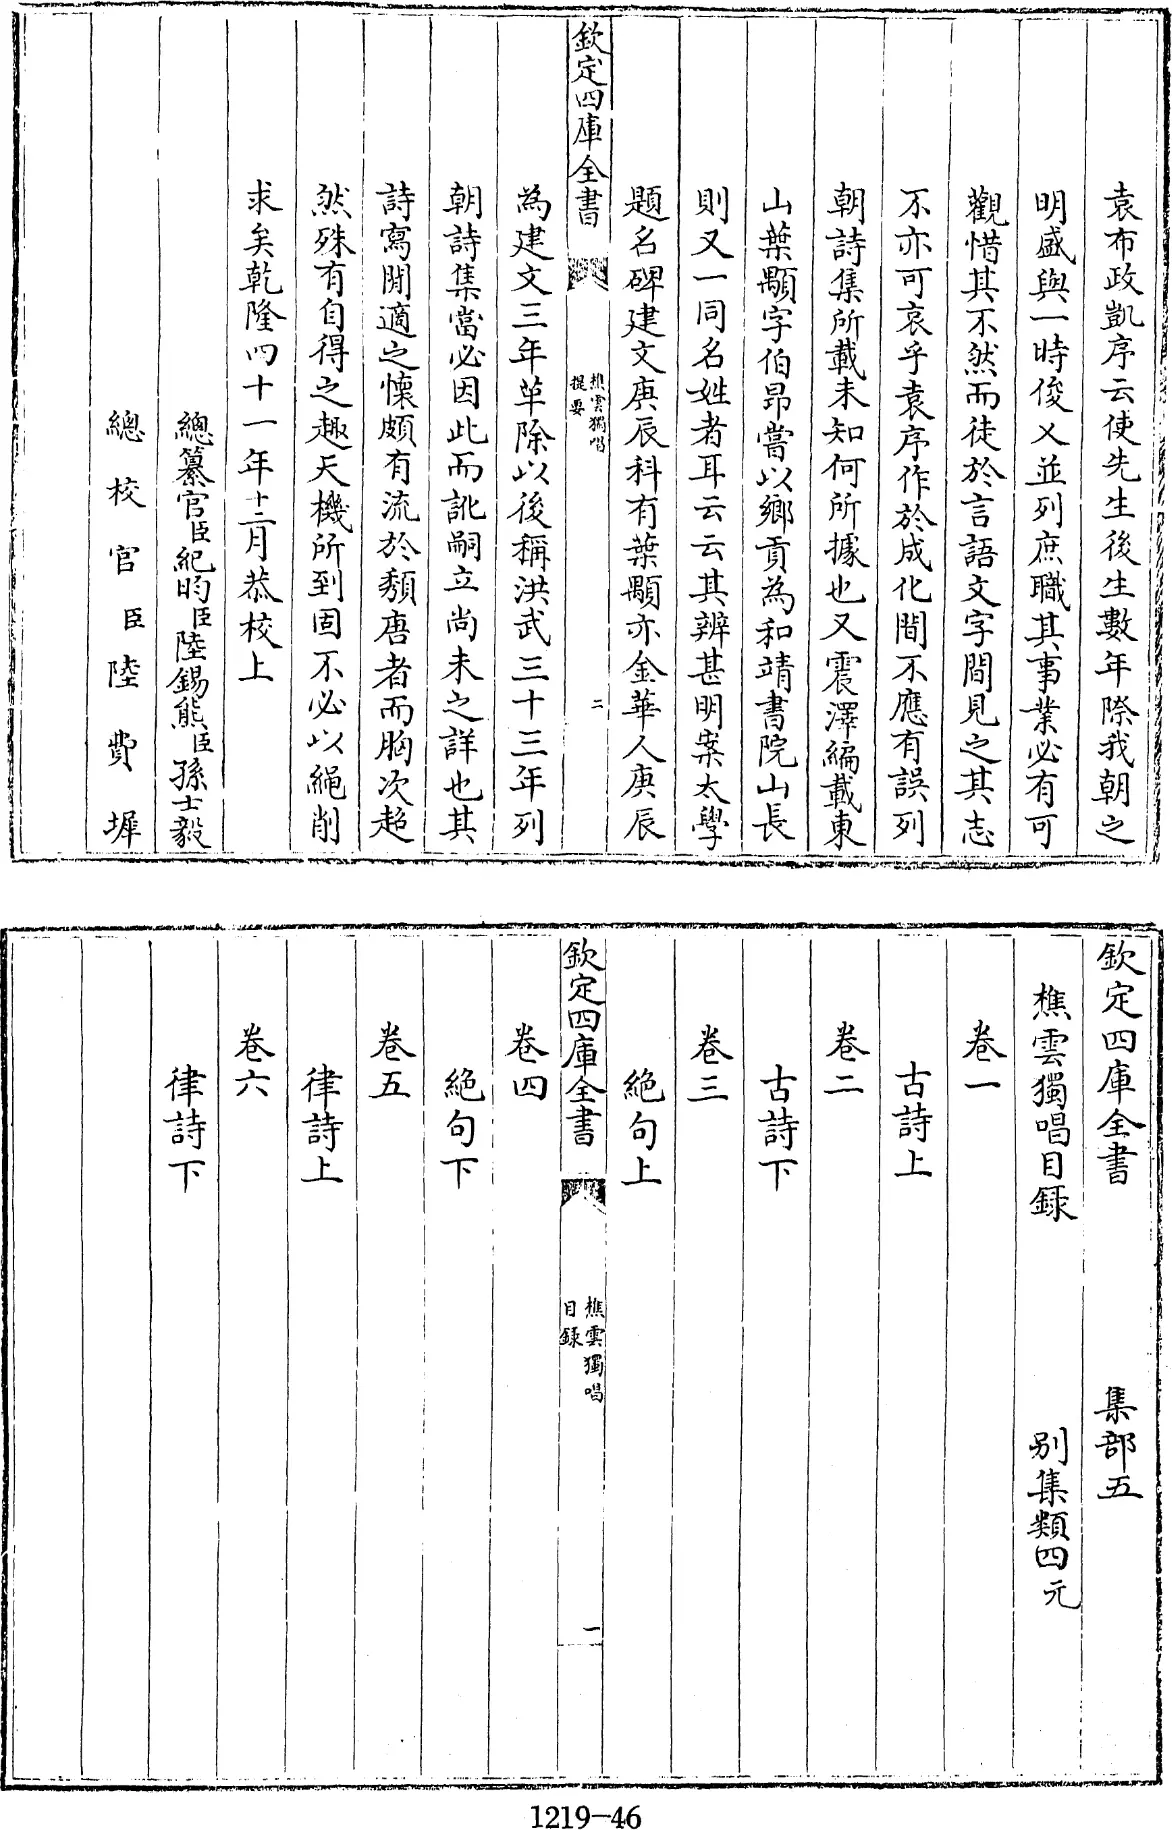 袁布政凱序云使先生後生數年際我朝之
明盛與一時俊乂並列庶職其事業必有可
觀惜其不然而徒於言語文字間見之其志
不亦可哀乎袁序作於成化間不應有誤列
朝詩集所載未知何所據也又震澤編載東
山葉顒字伯昂嘗以鄉貢為和靖書院山長
則又一同名姓者耳云云其辨甚明案太學
題名碑建文庚辰科有葉顒亦金華人庚辰
欽定四庫全書
樵雲獨唱
提要
二
為建文三年革除以後稱洪武三十三年列
朝詩集當必因此而訛嗣立尚未之詳也其
詩寫閒適之懷頗有流於頽唐者而胸次超
然殊有自得之趣天機所到固不必以繩削
求矣乾隆四十一年十二月恭校上
總纂官臣紀昀臣陸錫熊臣孫士毅
總校官臣陸費墀
欽定四庫全書 集部五
樵雲獨唱目録 别集類四元
卷一
古詩上
卷二
古詩下
卷三
絶句上
欽定四庫全書
樵雲獨唱
目録
一
卷四
絶句下
卷五
律詩上
卷六
律詩下
1219-46